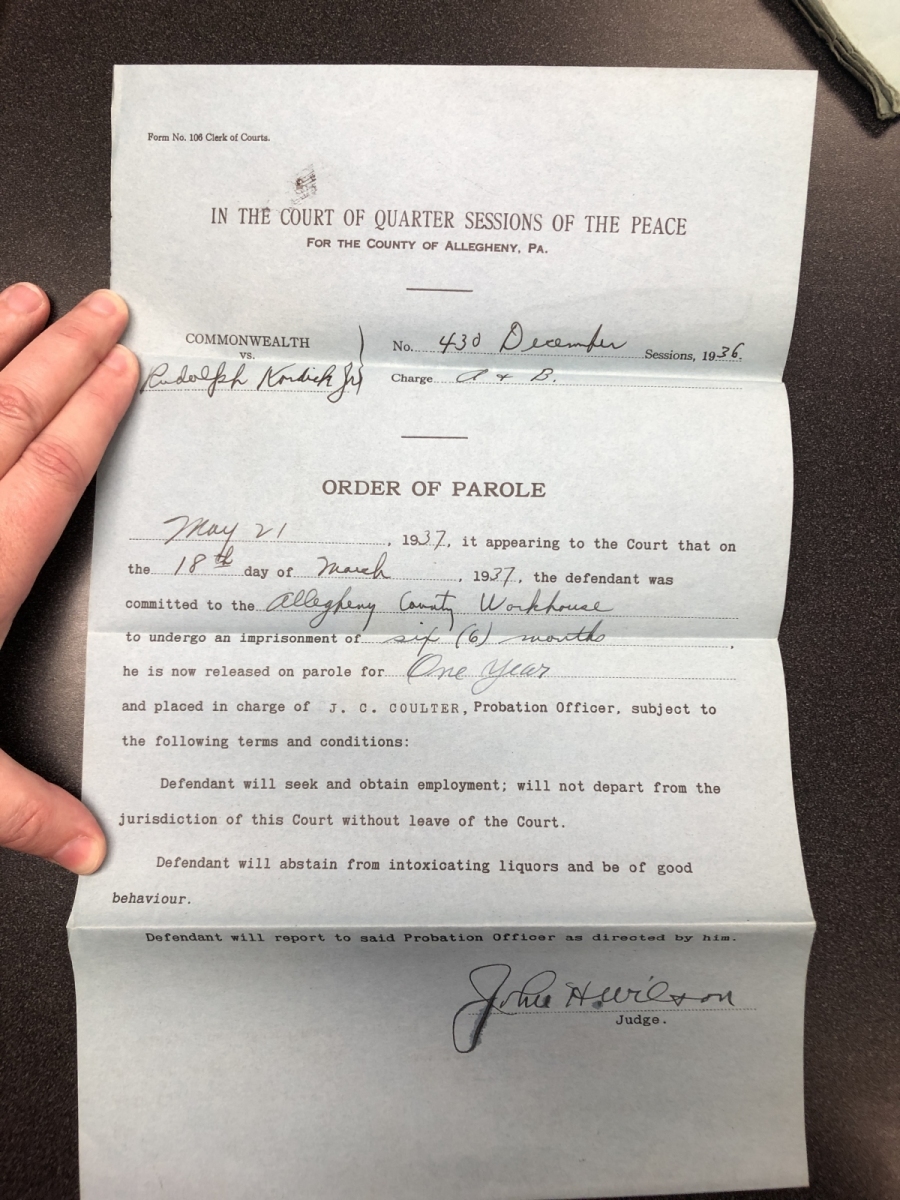 Form No. 106 Clerk of Courts.
IN THE COURT OF QUARTER SESSIONS OF THE PEACE
FOR THE COUNTY OF ALLEGHENY, PA.
COMMONWEALTH
vs.
Rudolph Kordich Jr
No. 430 December Sessions, 1936.
Charge A + B.
ORDER OF PAROLE
May 21, 1937, it appearing to the Court that on
the 18th day of March, 1937, the defendant was
committed to the Allegheny County Workhouse
to undergo an imprisonment of six (6) months,
he is now released on parole for One Year
and placed in charge of J. C. COULTER, Probation Officer, subject to
the following terms and conditions:
Defendant will seek and obtain employment; will not depart from the
jurisdiction of this Court without leave of the Court.
Defendant will abstain from intoxicating liquors and be of good
behaviour.
Defendant will report to said Probation Officer as directed by him.
John H. Wilson
Judge.